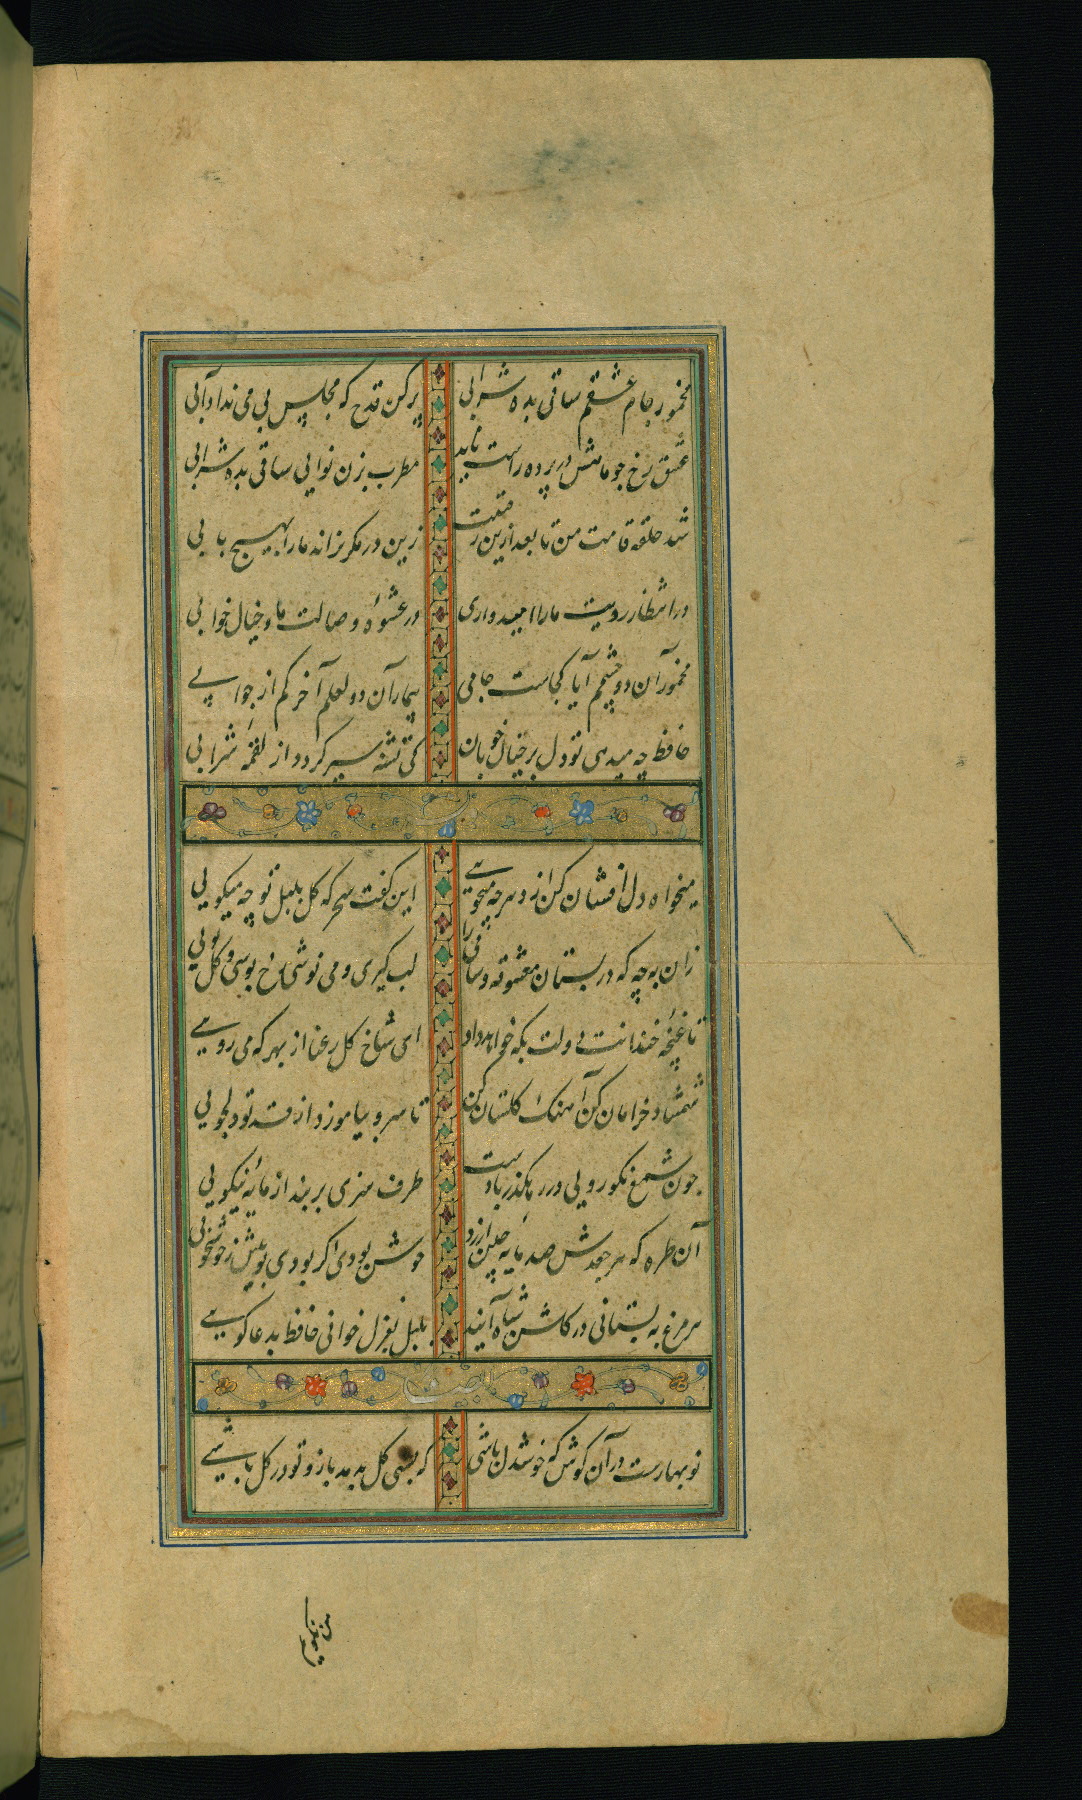 مخمور جام عشقم ساقی بده شرابی پر کن قدح که مجلس بی می ندارد آبی
عشق رخ چو ماهش در پرده راست ناید مطرب بزن نوایی ساقی بده شرابی
شد حلقه قامت من تا بعد ازین رقیبت زین در مکر نراند ما را بهیچ بابی
در انتظار رویت ما را امیدواری در عشوهٔ وصالت ما و خیال خوابی
مخمور آن دو چشمم آیا کجاست جامی بیمار آن دو لعلم آخر کم از جوابی
حافظ چه میدهی تو دل بر خیال خوبان کی تشنه سیر کردد از لقمهٔ شرابی
میخواه و دل افشان کن از دهر چه میجویی این گفت سحر که کل بلبل تو چه میکویی
زان به چه که در بستان معشوقه و ساقی را لب گیری و می نوشی رخ بوسی و گل بویی
تا غنچهٔ خندانت دولت بکه خواهد داد ای شاخ کل رعنا از بهر که می رویی
شمشاد خرامان کن آهنک کلستان کن تا سرو بیاموزد از قد تو دلجویی
چون شمع نکورویی در رهکذر بادست طرف هنری بربند از مایهٔ نیکویی
آن طره که هر جعدش صد مایه چین ارزد خوش بودی اکر بودی بوییش ز خوشخویی
هر مرغ به بستانی در کلشن شاه آیند بلبل بغزل خوانی حافظ بدعا کویی
نوبهارست در آن کوش که خوشدل باشی که بسی کل بدمد باز و تو در کل باشی
من نکویم